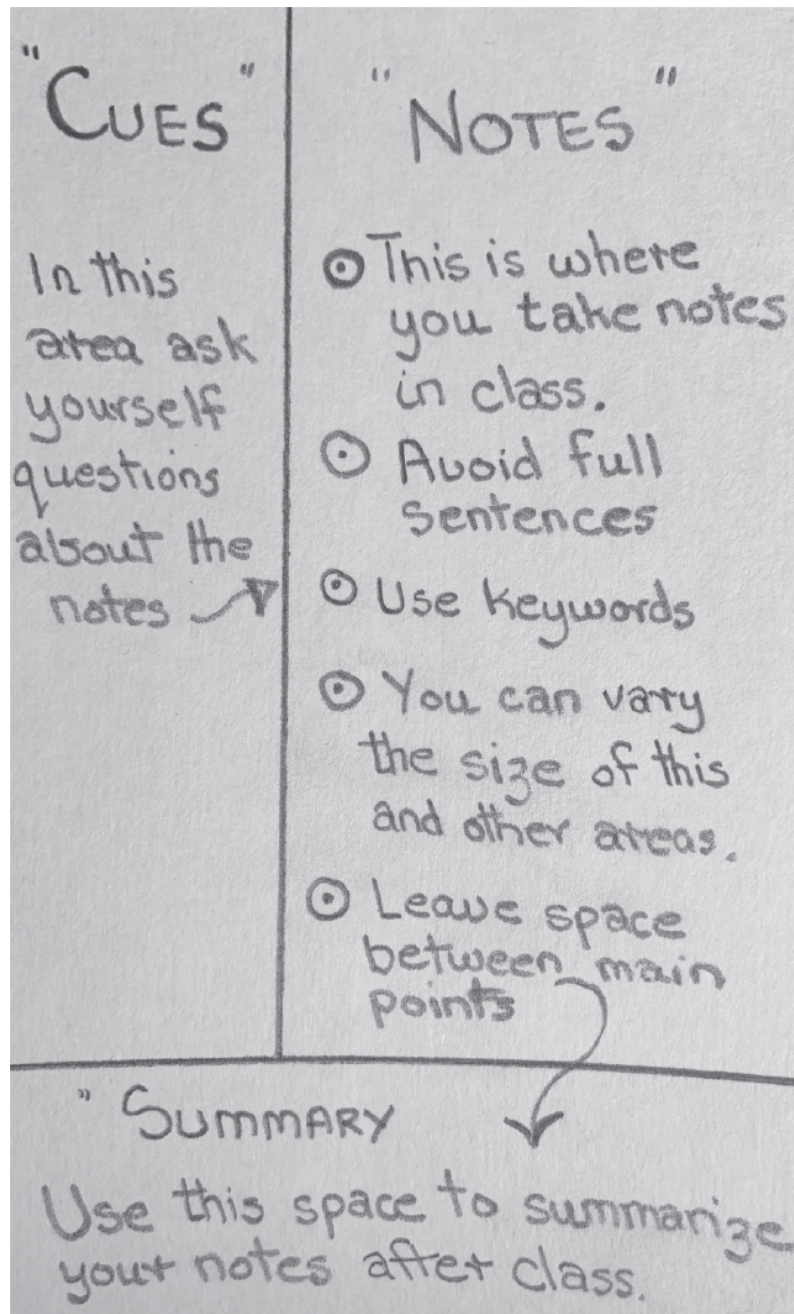 "CUES"
In this
area ask
yourself
questions
about the
notes
"NOTES"
This is where
you take notes
in class.
Avoid full
sentences
Use keywords
You can vary
the size of this
and other areas.
Leave space
between main
points
"SUMMARY
Use this space to summarize
your notes after class.